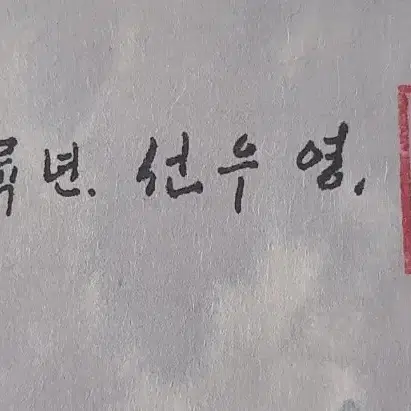 년. 선우 영.